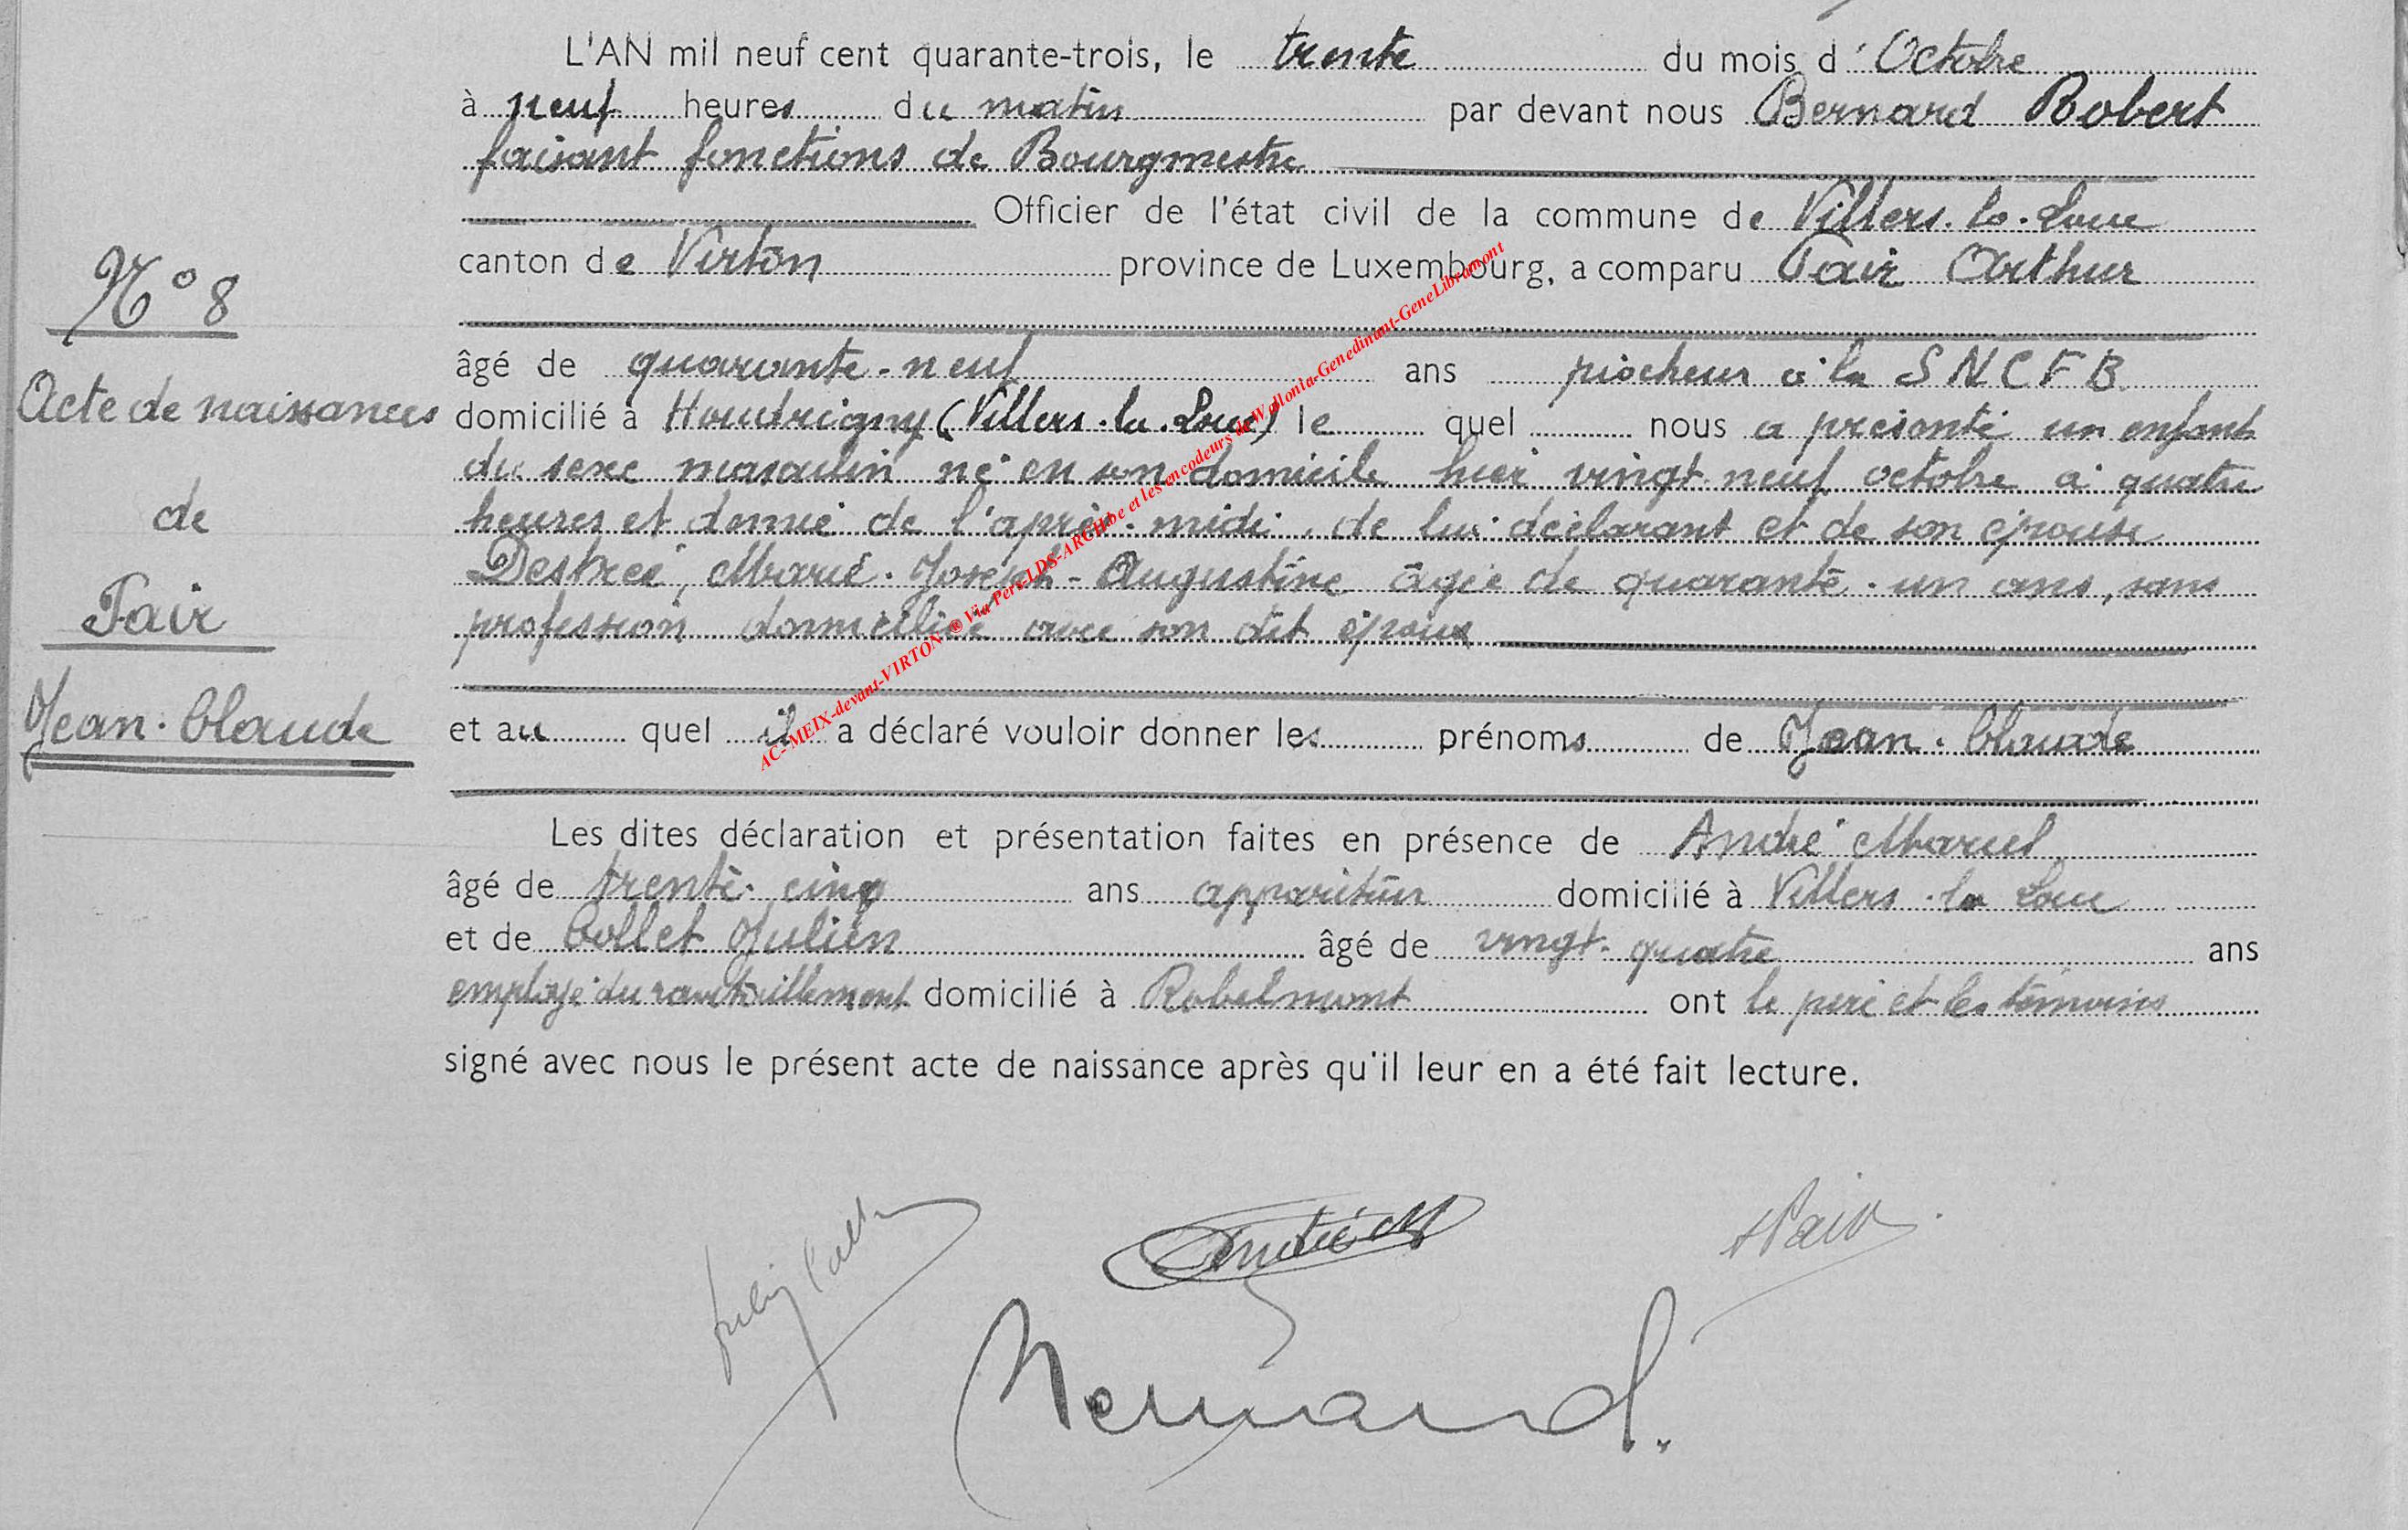 L'AN mil neuf cent quarante-trois, le trente du mois d'Octobre
à neuf heures du matin par devant nous Bernard Robert
faisant fonctions de Bourgmestre
Officier de l'état civil de la commune de Villers-la-Loue
canton de Virton province de Luxembourg, a comparu Pair Arthur
N° 8
âgé de quarante-neuf ans piocheur à la SNCFB
Acte de naissances
domicilié à Houdrigny (Villers-la-Loue) le quel nous a présenté un enfant
du sexe masculin né en son domicile hier vingt neuf octobre à quatre
de
heures et demie de l'après-midi, de lui déclarant et de son épouse
Destrée, Marie-Joseph-Augustine âgée de quarante-un ans, sans
Pair
profession domiciliée avec son dit époux
Jean-Claude
et au quel il a déclaré vouloir donner les prénoms de Jean-Claude
Les dites déclaration et présentation faites en présence de André Marcel
âgé de trente-cinq ans appariteur domicilié à Villers-la Loue
et de Collet Julien âgé de vingt-quatre ans
employé du ravitaillement domicilié à Robelmont ont le père et les témoins
signé avec nous le présent acte de naissance après qu'il leur en a été fait lecture.
AC-MEIX-devant-VIRTON-® Via Pere-LDS-ARCH.be et les encodeurs de Wallonia-Genedinant-GeneLibramont
Julien Collet
André M
APair
Bernard.